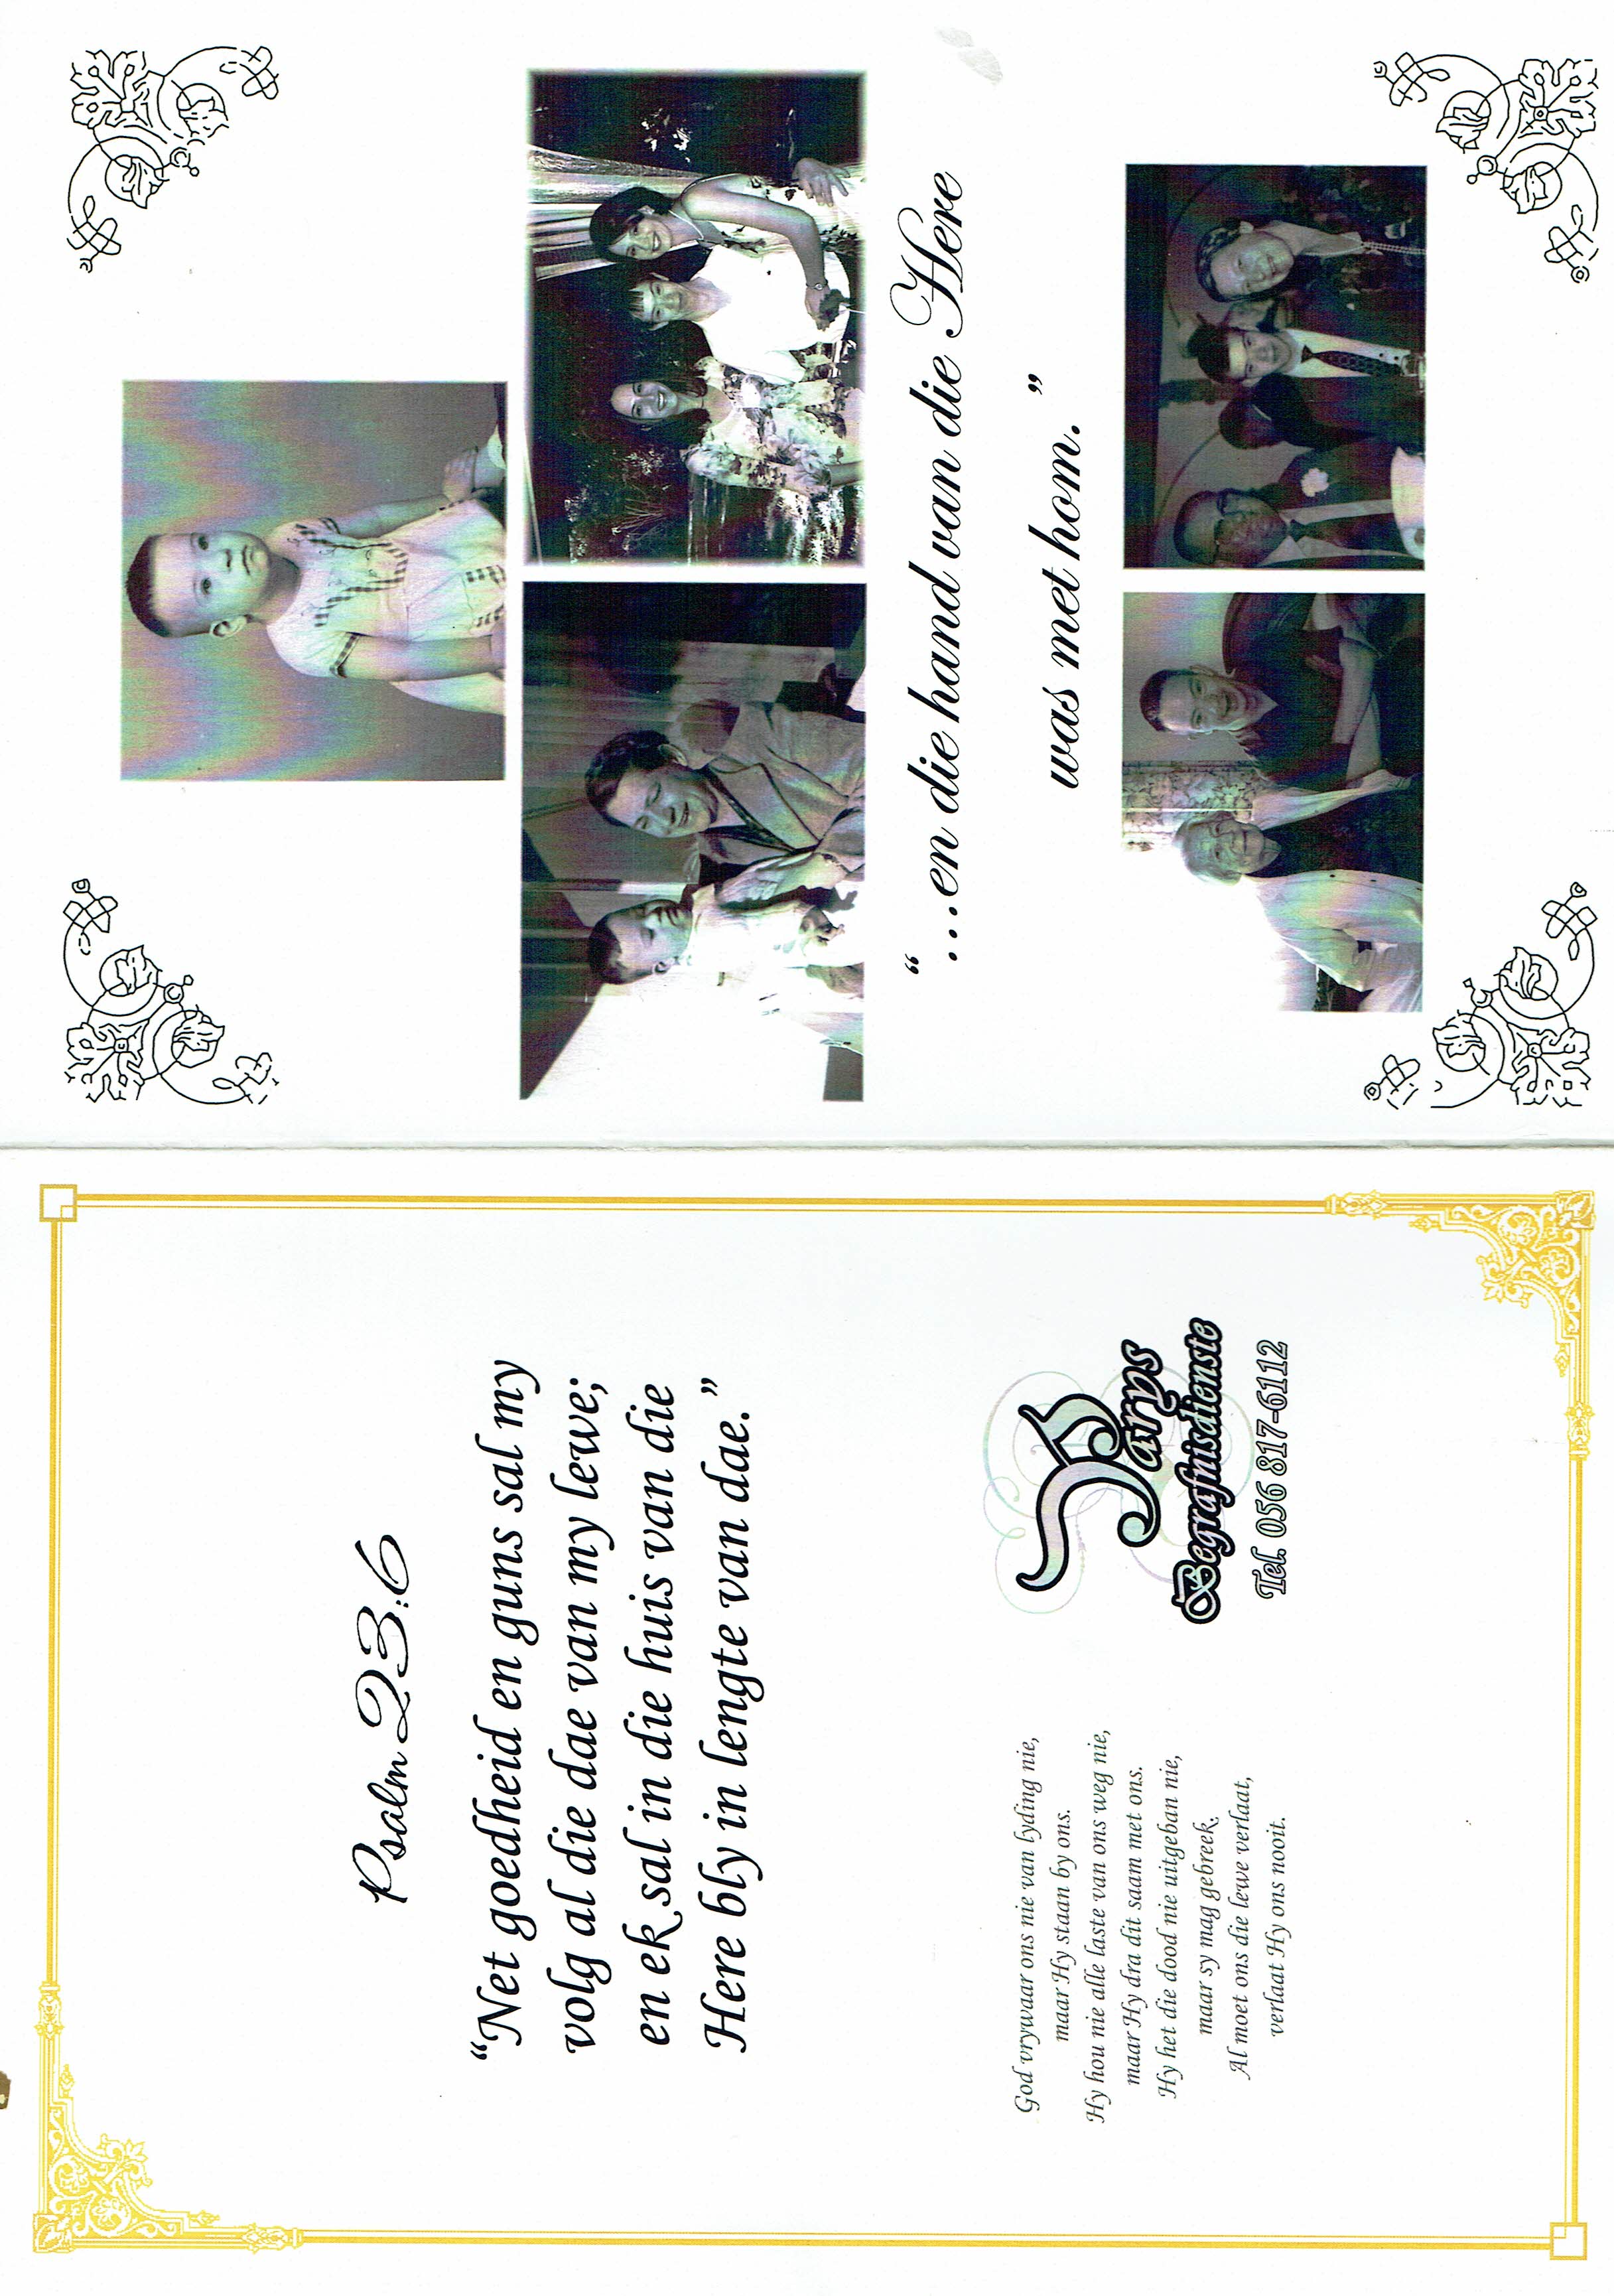 Psalm 23:6
“Net goedheid en guns sal my
volg al die dae van my lewe;
en ek sal in die huis van die
Here bly in lengte van dae.”
God vrywaar ons nie van lyding nie,
maar Hy staan by ons.
Hy hou nie alle laste van ons weg nie,
maar Hy dra dit saam met ons.
Hy het die dood nie uitgeban nie,
maar sy mag gebreek,
Al moet ons die lewe verlaat,
verlaat Hy ons nooit.
Parys
Begrafnisdienste
Tel. 056 817-6112
“...en die hand van die Here
was met hom.”